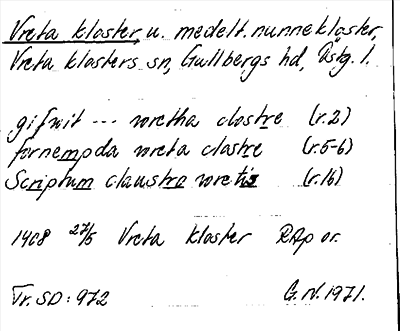 Vreta kloster, u. medelt. nunnekloster,
Vreta klosters sn, Gullbergs hd, Östg. l.
gifwit --- wretha clostre (r.2)
fornempda wreta clostre (r.5-6)
Scriptum claustro wretis (r.16)
1408 27/5 Vreta kloster RAp or.
Tr. SD: 972 G.N. 1971.